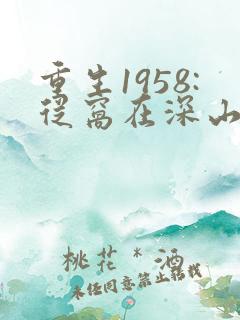 重生1958:
从窝在深山
桃花*酒
未经同意禁止转载